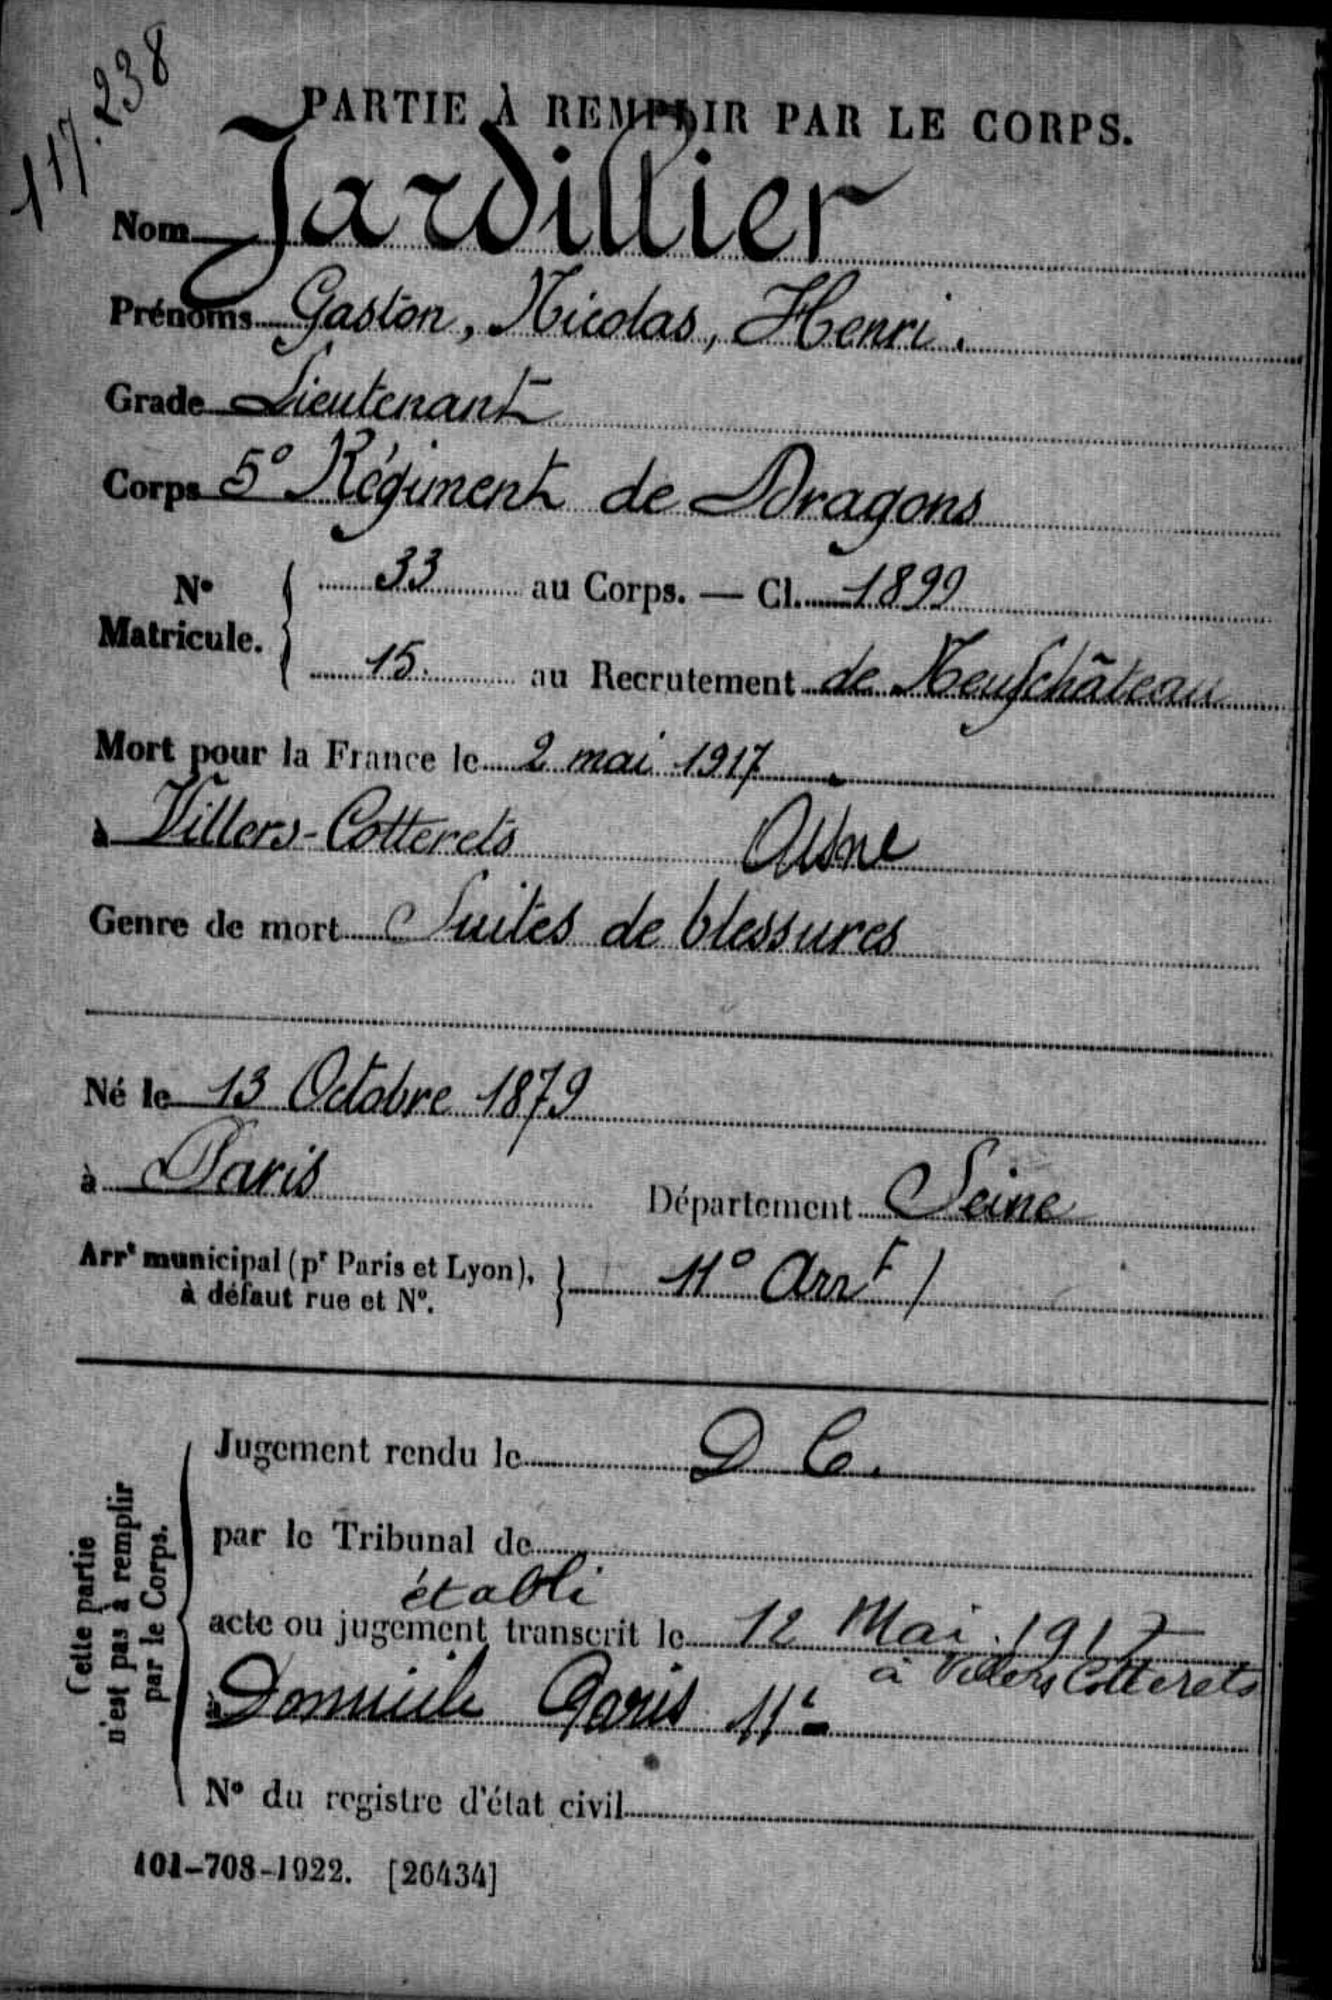 117.238
PARTIE À REMPLIR PAR LE CORPS.
Nom Jardillier
Prénoms Gaston, Nicolas, Henri.
Grade Lieutenant
Corps 5º Régiment de Dragons
Nº Matricule. { 33 au Corps. — Cl. 1899
15. au Recrutement de Neufchâteau
Mort pour la France le 2 mai 1917
à Villers-Cotterets Aisne
Genre de mort Suites de blessures
Né le 13 Octobre 1879
à Paris Département Seine
Arrt municipal (pr Paris et Lyon), à défaut rue et Nº. } 11º Arrt /
Cette partie n'est pas à remplir par le Corps.
Jugement rendu le D C.
par le Tribunal de
établi
acte ou jugement transcrit le 12 Mai. 1917
à Villers Cotterets
à Domicile Paris 11e
Nº du registre d'état civil
101-708-1922. [26434]